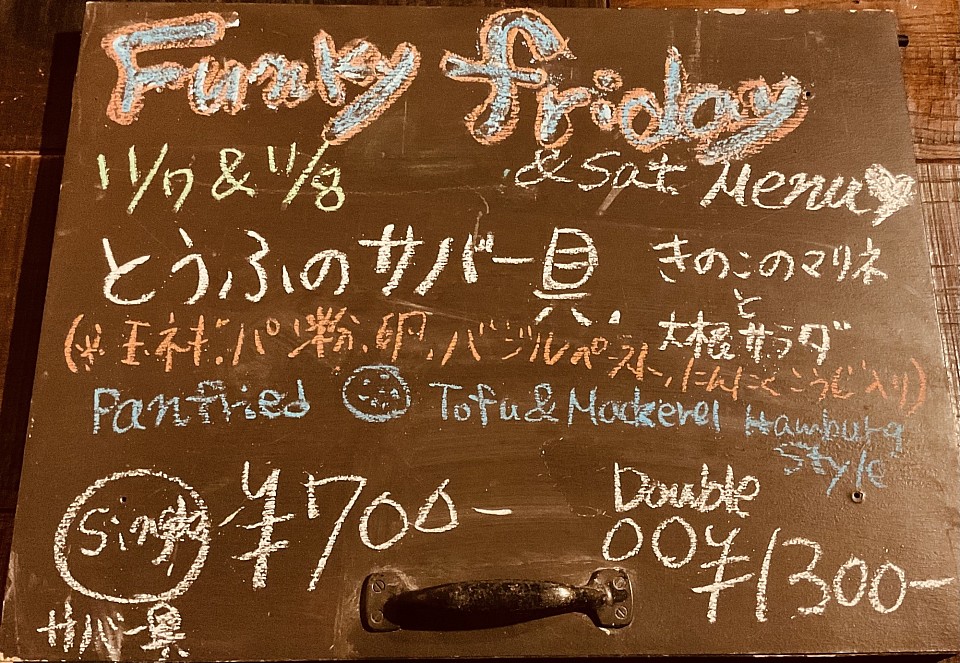 Funky friday
11/7 & 11/8
& Sat Menu
とうふのサバー具
きのこのマリネ
と
大根サラダ
(※玉ネギ、パン粉、卵、バジルペースト、にんにくこうじ入り)
Panfried Tofu & Mackerel Hamburg
Style
Single ¥700-
サバー具
Double
00 ¥1300-